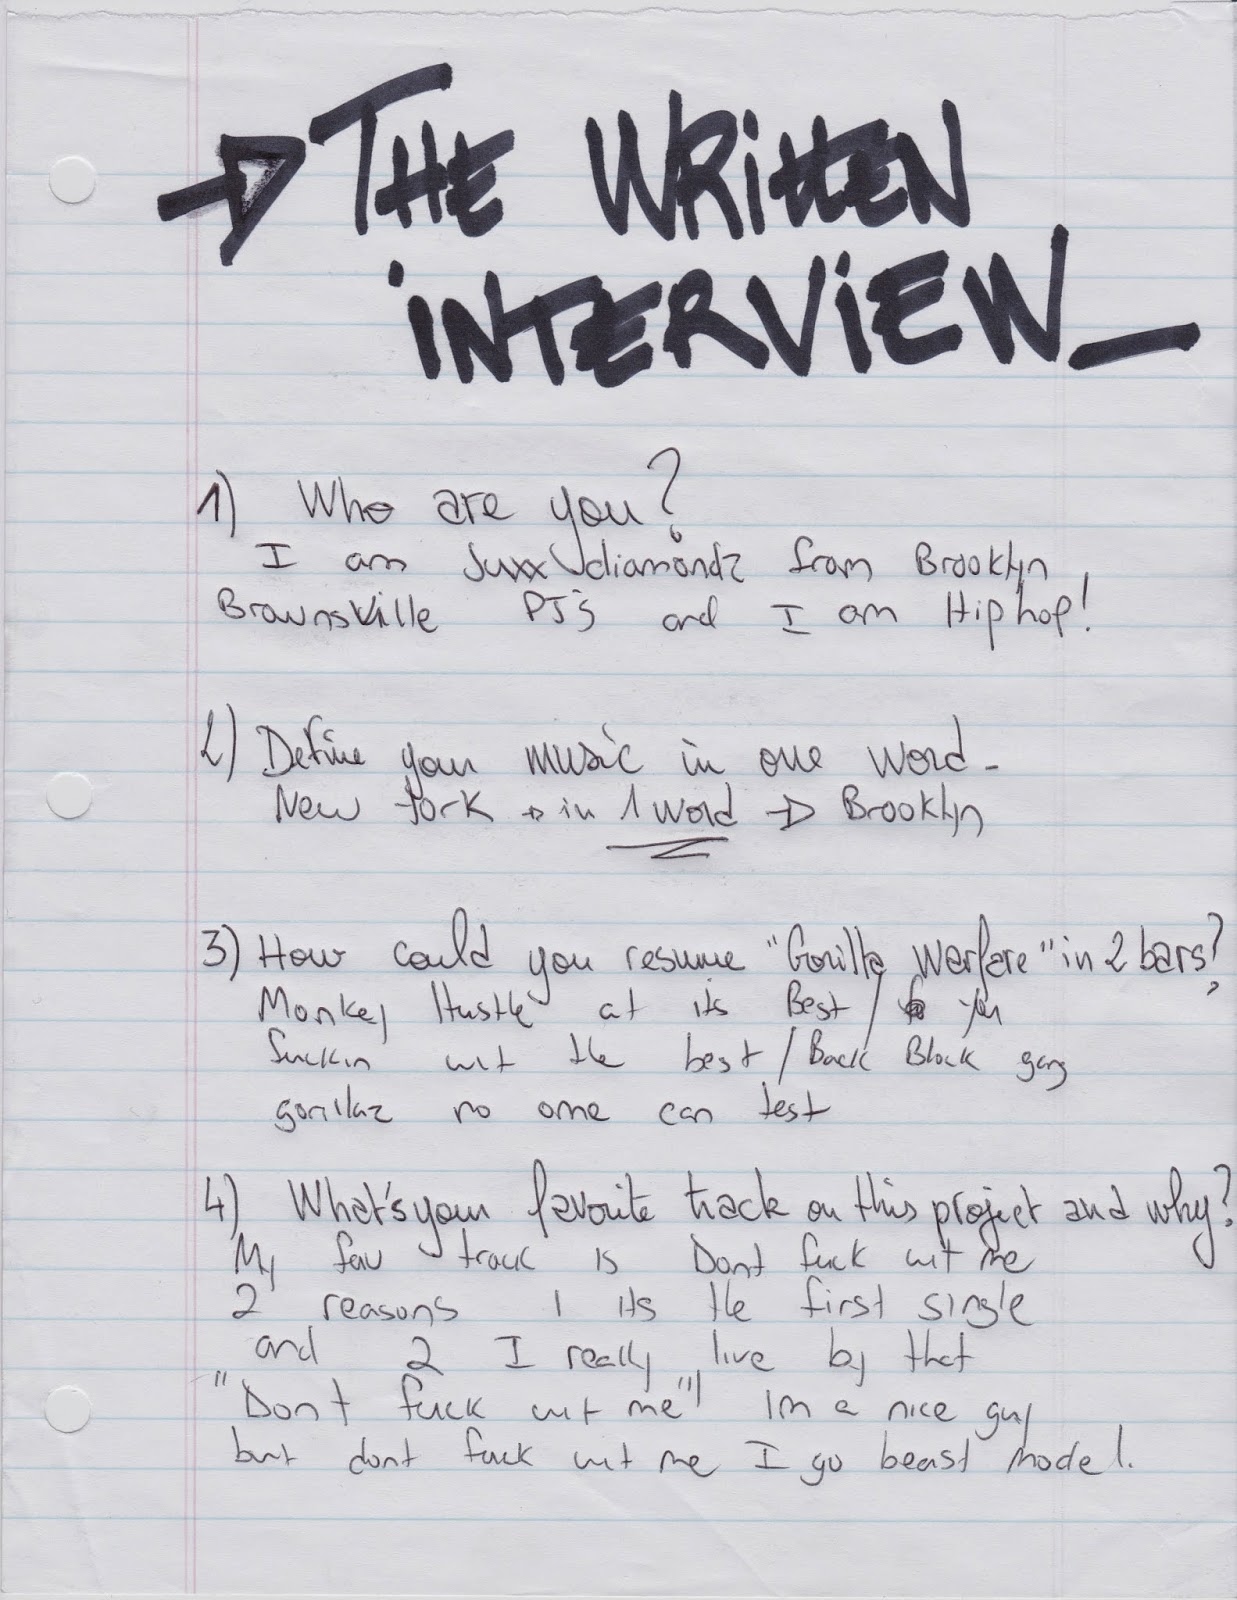 THE WRITTEN
INTERVIEW_
1) Who are you?
I am Juxx diamondz from Brooklyn
Brownsville PJ's and I am Hip hop!
2) Define your music in one word_
New York → in 1 word → Brooklyn
3) How could you resume "Gorilla Warfare" in 2 bars?
Monkey Hustle at its Best / you
fuckin wit the best / Back Block gang
gorillaz no one can test
4) What's your favorite track on this project and why?
My fav track is Dont fuck wit me
2 reasons 1 its the first single
and 2 I really live by that
"Dont fuck wit me"! Im a nice guy
but dont fuck wit me I go beast mode!.